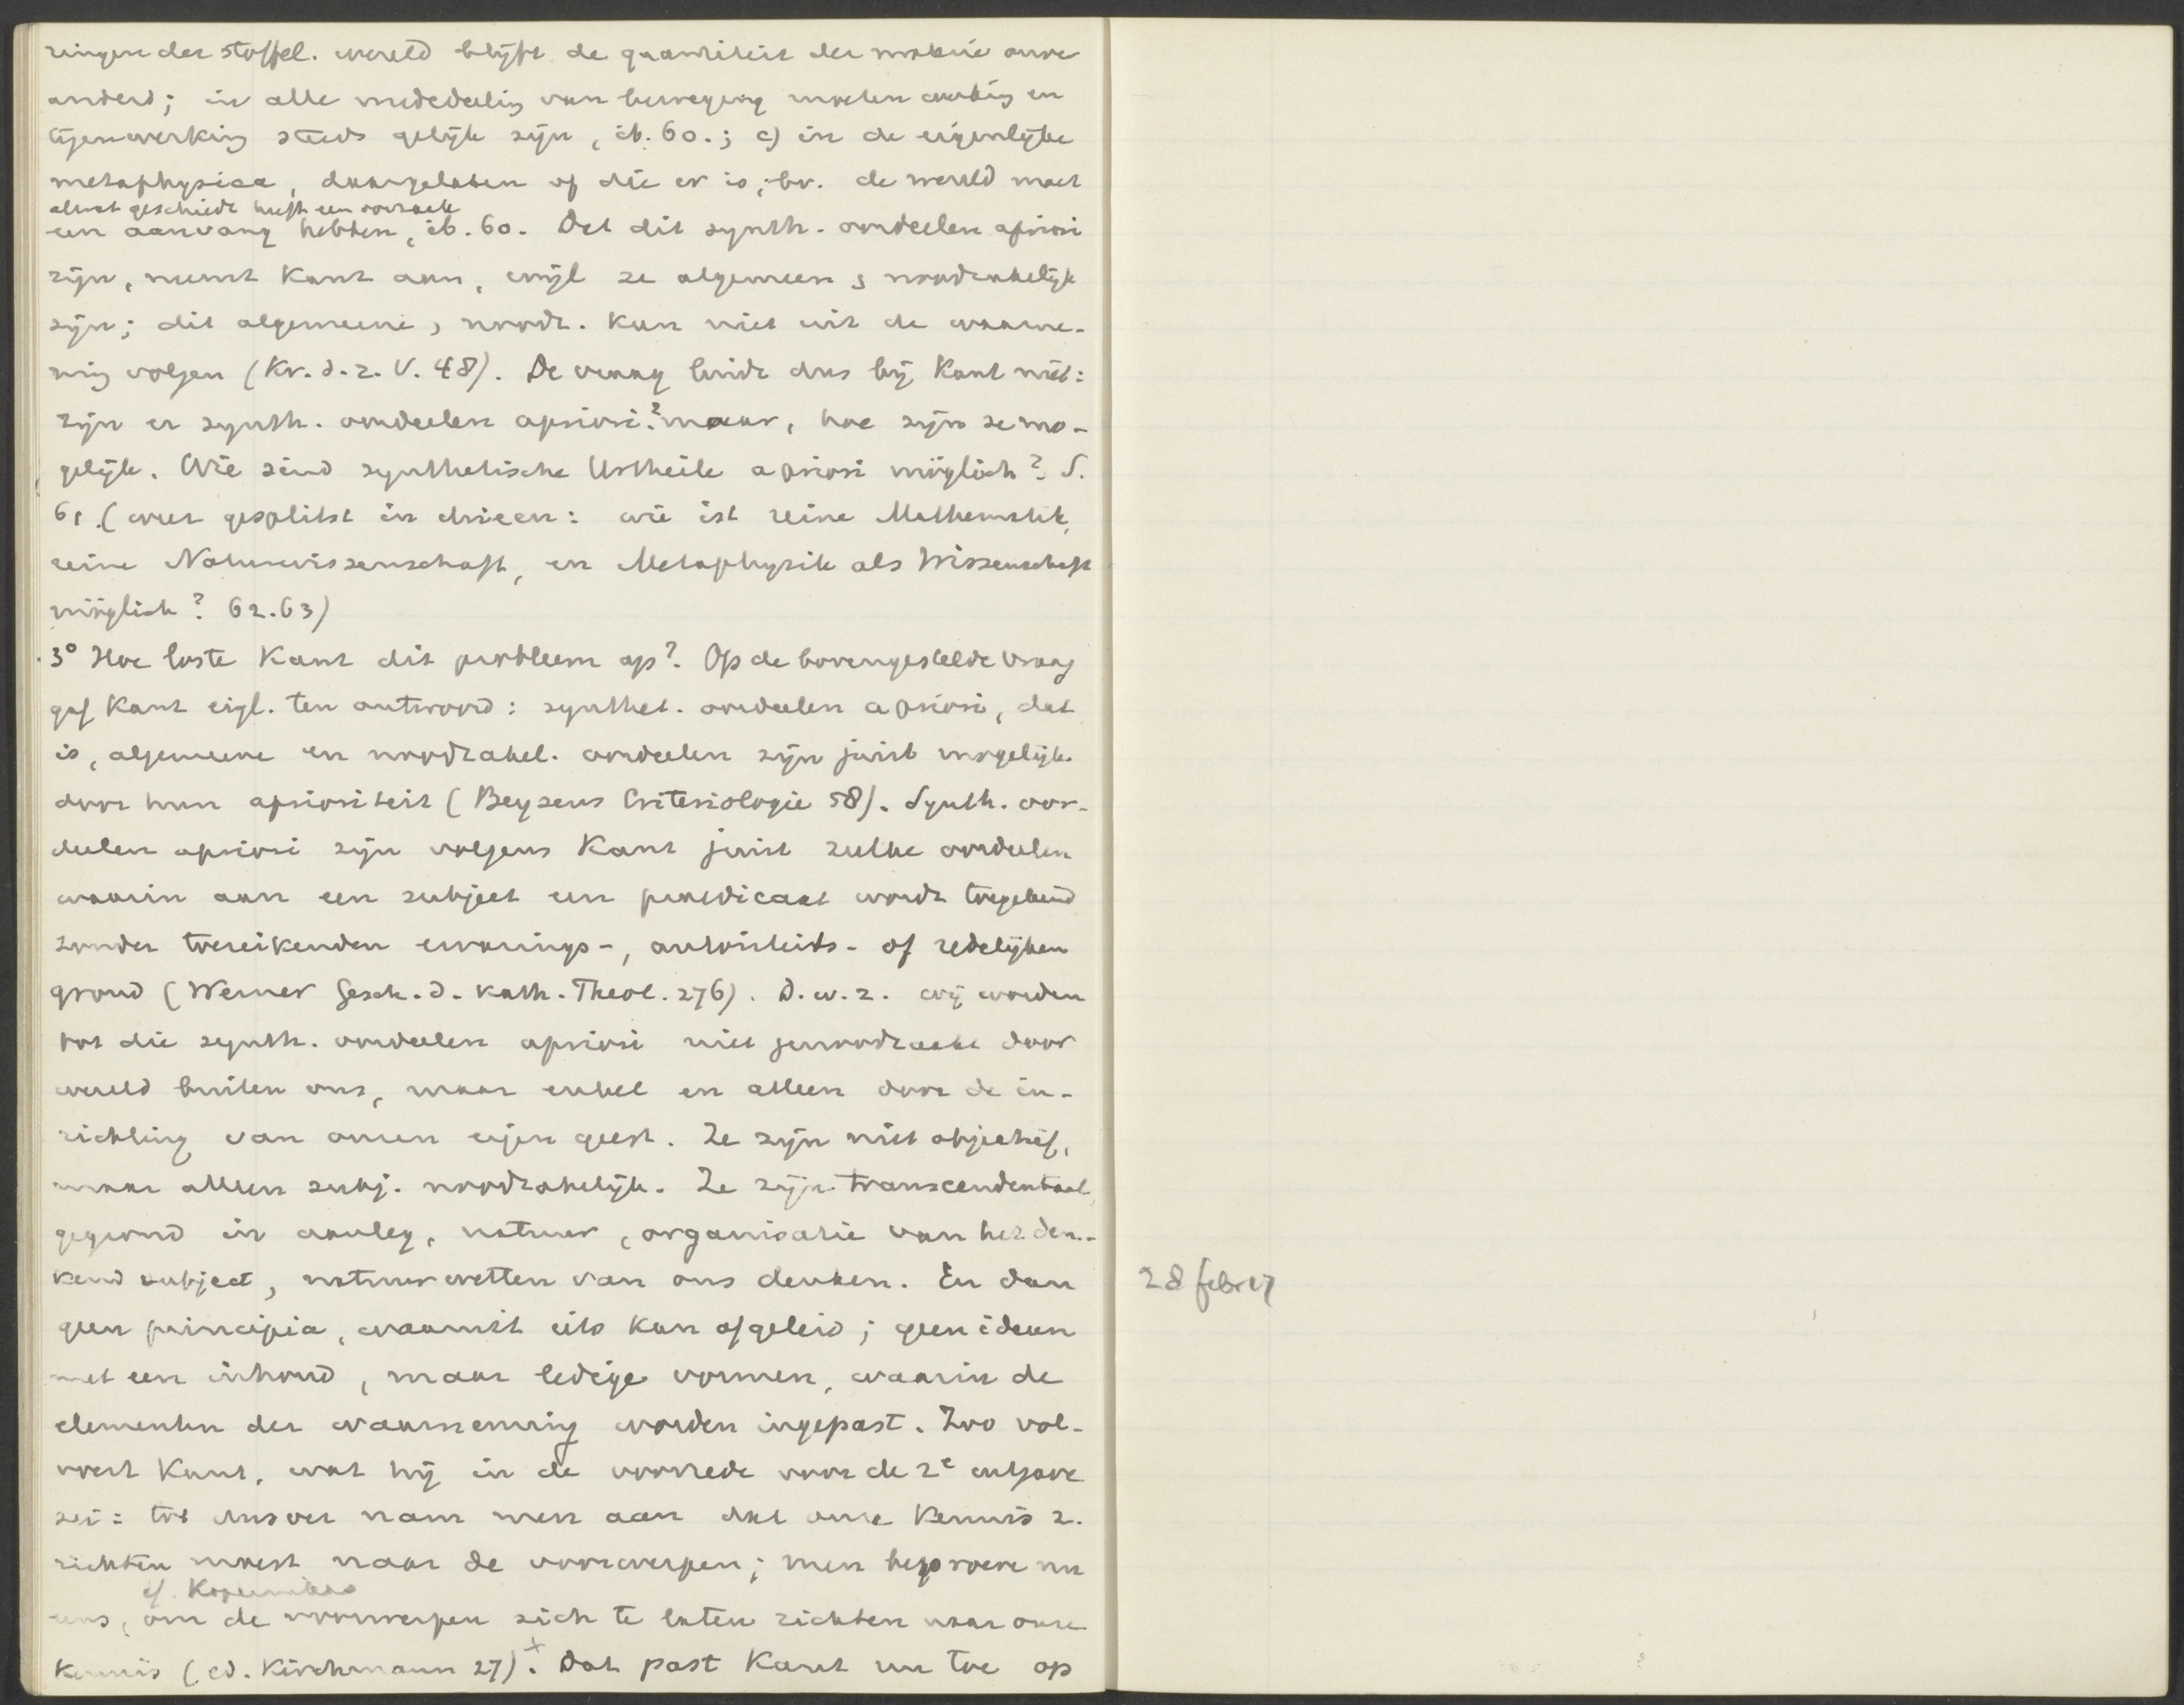 ringen der stoffel. wereld blijft de quantiteit der materie onve
anderd; in alle mededeeling van beweging moeten werking en
tegenwerking steeds gelijk zijn, ib. 60.; c) in de eigenlijke
metaphysica, daargelaten of die er is, bv. de wereld moet
alwat geschiedt heeft een oorzaak
een aanvang hebben, ib. 60. Dat dit synth. oordeelen apriori
zijn, neemt Kant aan, wijl ze algemeen & noodzakelijk
zijn; dit algemeene, noodz. kan niet uit de waarne-
ming volgen (Kr. d. r. V. 48). De vraag luidt dus bij Kant niet:
zijn er synth. oordeelen apriori? maar, hoe zijn ze mo-
gelijk. Wie sind synthetische Urtheile a priori möglich? S.
61. (weer gesplitst in drieen: wie ist reine Mathematik,
reine Naturwissenschaft, en Metaphysik als Wissenschaft
möglich? 62.63)
3° Hoe loste Kant dit probleem op? Op de bovengestelde vraag
gaf Kant eigl. ten antwoord: synthet. oordeelen a priori, dat
is, algemeene en noodzakel. oordeelen zijn juist mogelijk
door hun aprioriteit (Beysens Criteriologie 58). Synth. oor-
deelen apriori zijn volgens Kant juist zulke oordeelen
waarin aan een subject een praedicaat wordt toegekend
zonder toereikenden ervarings-, autoriteits- of redelijken
grond (Werner Gesch. d. kath. Theol. 276). D.w.z. wij worden
tot die synth. oordeelen apriori niet genoodzaakt door
wereld buiten ons, maar enkel en alleen door de in-
richting van onzen eigen geest. Ze zijn niet objectief,
maar alleen subj. noodzakelijk. Ze zijn transcendentaal,
gegrond in aanleg, natuur, organisatie van het den-
kend subject, natuurwetten van ons denken. En dan
geen principia, waaruit iets kan afgeleid; geen ideeen
met een inhoud, maar ledige vormen, waarin de
elementen der waarneming worden ingepast. Zoo vol-
voert Kant, wat hij in de voorrede voor de 2e uitgave
zei: tot dusver nam men aan dat onze kennis z.
richten moest naar de voorwerpen; men beproeve nu
cf. Kopernikus
eens, om de voorwerpen zich te laten richten naar onze
kennis (ed. Kirchmann 27).+ Dat past Kant nu toe op
28 febr 17